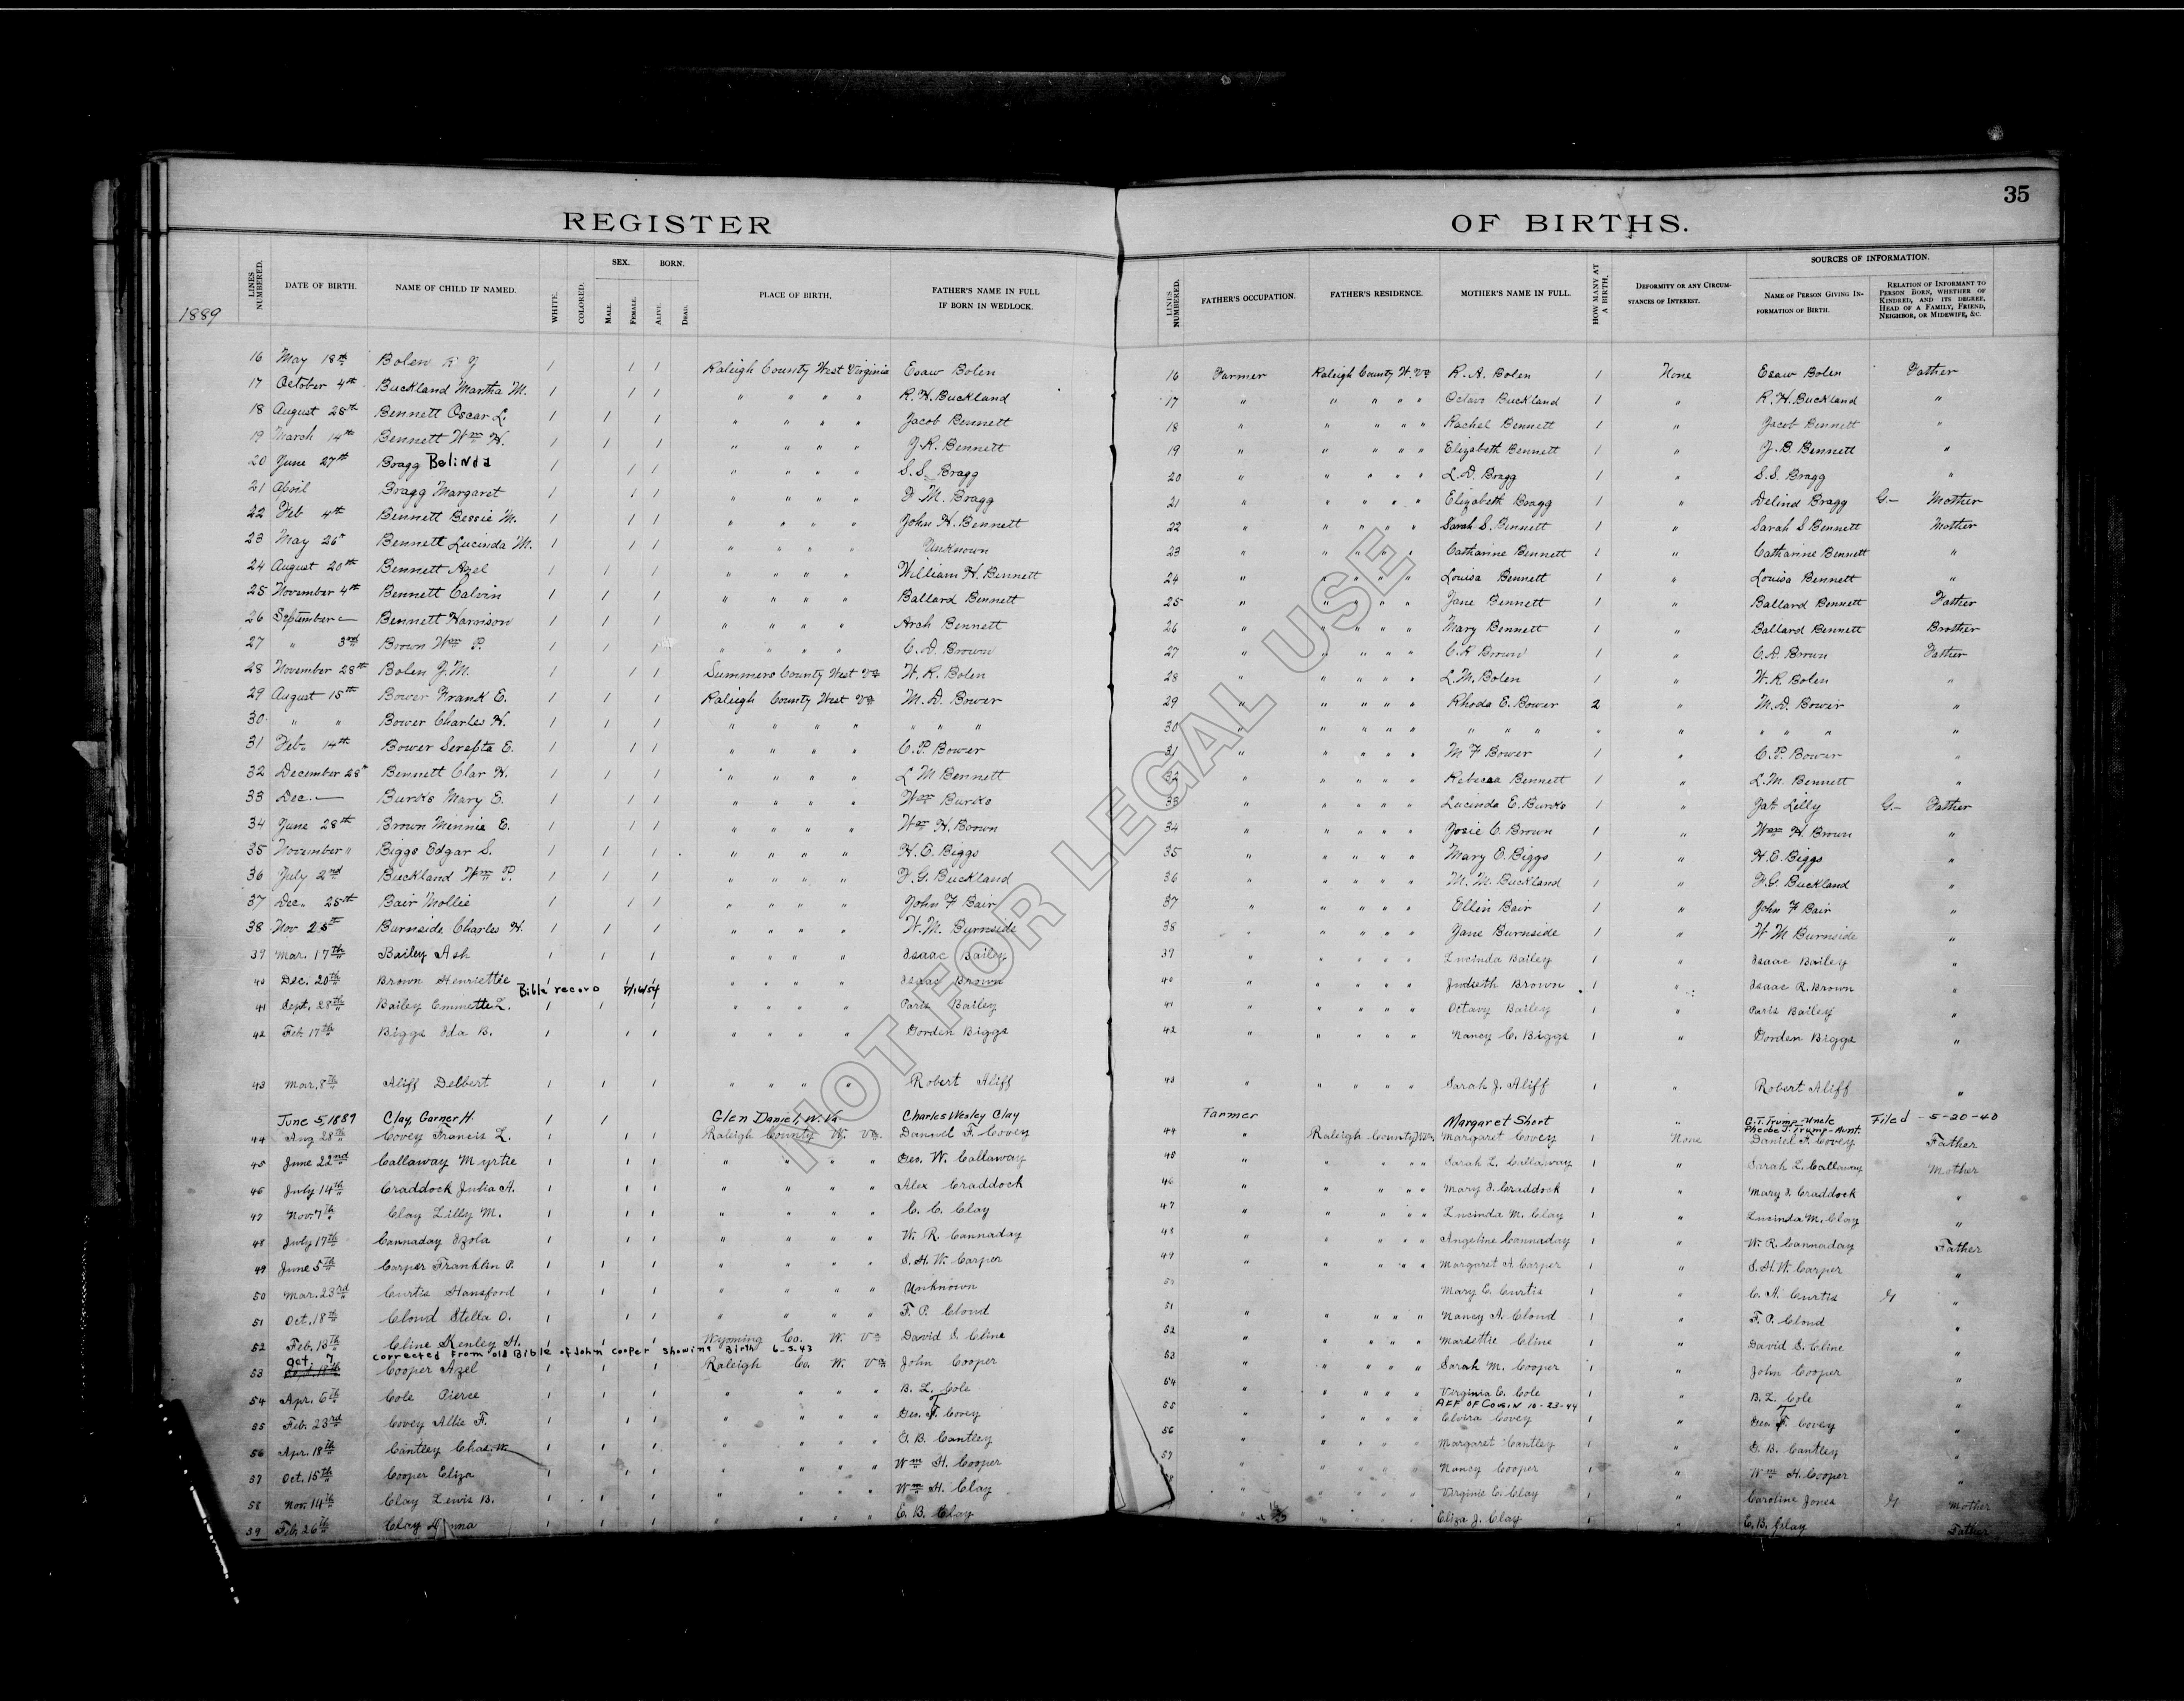 35
REGISTER OF BIRTHS.
1889
LINES NUMBERED. DATE OF BIRTH. NAME OF CHILD IF NAMED. WHITE. COLORED. SEX. MALE. FEMALE. BORN. ALIVE. DEAD. PLACE OF BIRTH. FATHER'S NAME IN FULL IF BORN IN WEDLOCK. LINES NUMBERED. FATHER'S OCCUPATION. FATHER'S RESIDENCE. MOTHER'S NAME IN FULL. HOW MANY AT A BIRTH. DEFORMITY OR ANY CIRCUMSTANCES OF INTEREST. SOURCES OF INFORMATION. NAME OF PERSON GIVING INFORMATION OF BIRTH. RELATION OF INFORMANT TO PERSON BORN, WHETHER OF KINDRED, AND ITS DEGREE, HEAD OF A FAMILY, FRIEND, NEIGHBOR, OR MIDEWIFE, &C.
16 May 18th Bolen 1 1 1 Raleigh County West Virginia Esaw Bolen 16 Farmer Raleigh County W. Va R. A. Bolen 1 None Esaw Bolen Father
17 October 4th Buckland Martha M. 1 1 1 " " " " R. H. Buckland 17 " " " " " Octavo Buckland 1 " R. H. Buckland "
18 August 28th Bennett Oscar L. 1 1 1 " " " " Jacob Bennett 18 " " " " " Rachel Bennett 1 " Jacob Bennett "
19 March 14th Bennett Wm H. 1 1 1 " " " " J. R. Bennett 19 " " " " " Elizabeth Bennett 1 " J. B. Bennett "
20 June 27th Bragg Belinda 1 1 1 " " " " S. S. Bragg 20 " " " " " L. D. Bragg 1 " S. S. Bragg "
21 April Bragg Margaret 1 1 1 " " " " F. M. Bragg 21 " " " " " Elizabeth Bragg 1 " Delind Bragg G.- Mother
22 Feb 4th Bennett Bessie M. 1 1 1 " " " " John H. Bennett 22 " " " " " Sarah S. Bennett 1 " Sarah S Bennett Mother
23 May 26th Bennett Lucinda M. 1 1 1 " " " " Unknown 23 " " " " " Catharine Bennett 1 " Catharine Bennett "
24 August 20th Bennett Azel 1 1 1 " " " " William H. Bennett 24 " " " " " Louisa Bennett 1 " Louisa Bennett "
25 November 4th Bennett Calvin 1 1 1 " " " " Ballard Bennett 25 " " " " " Jane Bennett 1 " Ballard Bennett Father
26 September — Bennett Harrison 1 1 1 " " " " Arch Bennett 26 " " " " " Mary Bennett 1 " Ballard Bennett Brother
27 " 3rd Brown Wm P. 1 1 1 " " " " C. D. Brown 27 " " " " " C. K Brown 1 " C. D. Brown Father
28 November 28th Bolen J. M. 1 1 1 Summers County West Va W. R. Bolen 28 " " " " " L. M. Bolen 1 " W. R. Bolen "
29 August 15th Bower Frank E. 1 1 1 Raleigh County West Va M. D. Bower 29 " " " " " Rhoda E. Bower 2 " M. D. Bower "
30 " " Bower Charles H. 1 1 1 " " " " " " " 30 " " " " " " " " " " " " " "
31 Feb. 14th Bower Serepta E. 1 1 1 " " " " C. P. Bower 31 " " " " " M F Bower 1 " C. P. Bower "
32 December 28th Bennett Clar H. 1 1 1 " " " " L M Bennett 32 " " " " " Rebecca Bennett 1 " L. M. Bennett "
33 Dec. — Burks Mary E. 1 1 1 " " " " Wm Burks 33 " " " " " Lucinda E. Burks 1 " Jat Lilly G.- Father
34 June 28th Brown Minnie E. 1 1 1 " " " " Wm H. Brown 34 " " " " " Josie C. Brown 1 " Wm H. Brown "
35 November " Biggs Edgar S. 1 1 1 " " " " H. E. Biggs 35 " " " " " Mary E. Biggs 1 " H. E. Biggs "
36 July 2nd Buckland Wm P. 1 1 1 " " " " F. G. Buckland 36 " " " " " M. M. Buckland 1 " F. G. Buckland "
37 Dec. 25th Bair Mollie 1 1 1 " " " " John F Bair 37 " " " " " Ellen Bair 1 " John F Bair "
38 Nov 25th Burnside Charles H. 1 1 1 " " " " W. M. Burnside 38 " " " " " Jane Burnside 1 " W M Burnside "
39 Mar. 17th Bailey Ash 1 1 1 " " " " Isaac Bailey 39 " " " " " Lucinda Bailey 1 " Isaac Bailey "
40 Dec. 20th Brown Henriettie 1 1 1 " " " " Isaac Brown 40 " " " " " Judieth Brown 1 " Isaac R. Brown "
Bible record 8/16/54
41 Sept. 28th Bailey Emmette L. 1 1 1 " " " " Paris Bailey 41 " " " " " Octavy Bailey 1 " Paris Bailey "
42 Feb. 17th Biggs Ida B. 1 1 1 " " " " Gorden Biggs 42 " " " " " Nancy C. Biggs 1 " Gorden Biggs "
43 Mar. 8th Aliff Delbert 1 1 1 " " " " Robert Aliff 43 " " " " " Sarah J. Aliff 1 " Robert Aliff "
June 5, 1889 Clay, Garner H. 1 1 Glen Daniel, W. Va Charles Wesley Clay Farmer Margaret Short " C. T. Trump - Uncle Phebe J. Trump - Aunt. Filed - 5-20-40
44 Aug 28th Covey Francis L. 1 1 1 Raleigh County W. Va. Daniel F. Covey 44 " Raleigh County W Va Margaret Covey 1 None Daniel F. Covey Father
45 June 22nd Callaway Myrtie 1 1 1 " " " " Geo. W. Callaway 45 " " " " " Sarah L. Callaway 1 " Sarah L. Callaway Mother
46 July 14th Craddock Julia A. 1 1 1 " " " " Alex Craddock 46 " " " " " Mary J. Craddock 1 " Mary J. Craddock "
47 Nov. 7th Clay Lilly M. 1 1 1 " " " " C. C. Clay 47 " " " " " Lucinda M. Clay 1 " Lucinda M. Clay "
48 July 17th Cannaday Izola 1 1 1 " " " " W. R. Cannaday 48 " " " " " Angeline Cannaday 1 " W. R. Cannaday Father
49 June 5th Carper Franklin P. 1 1 1 " " " " S. H. W. Carper 49 " " " " " Margaret A. Carper 1 " S. H. W. Carper "
50 Mar. 23rd Curtis Hansford 1 1 1 " " " " Unknown 50 Mary C. Curtis 1 " C. A. Curtis G "
51 Oct. 18th Cloud Stella O. 1 1 1 " " " " F. P. Cloud 51 " " " " " Nancy A. Cloud 1 " F. P. Cloud "
52 Feb. 13th Cline Kenley H. 1 1 1 Wyoming Co. W. Va David S. Cline 52 " " " " " Mariettie Cline 1 " David S. Cline "
Oct. 7 Corrected from old Bible of John Cooper showing Birth 6-5-43
53 Cooper Azel 1 1 1 Raleigh Co. W. Va John Cooper 53 " " " " " Sarah M. Cooper 1 " John Cooper "
54 Apr. 6th Cole Pierce 1 1 1 " " " " B. L. Cole 54 " " " " " Virginia C. Cole 1 " B. L. Cole "
AFF OF Cousin 10-23-44
55 Feb. 23rd Covey Allie F. 1 1 1 " " " " Geo. T. Covey 55 " " " " " Elvira Covey 1 " Geo. T. Covey "
56 Apr. 18th Cantley Chas. W. 1 1 1 " " " " G. B. Cantley 56 " " " " " Margaret Cantley 1 " G. B. Cantley "
57 Oct. 15th Cooper Eliza 1 1 1 " " " " Wm H. Cooper 57 " " " " " Nancy Cooper 1 " Wm H. Cooper "
58 Nov. 14th Clay Lewis B. 1 1 1 " " " " Wm H. Clay " " " " " Virginie C. Clay 1 " Caroline Jones G Mother
59 Feb. 26th Clay 1 1 1 " " " " E. B. Clay " " " " " Eliza J. Clay 1 " E. B. Clay Father
NOT FOR LEGAL USE